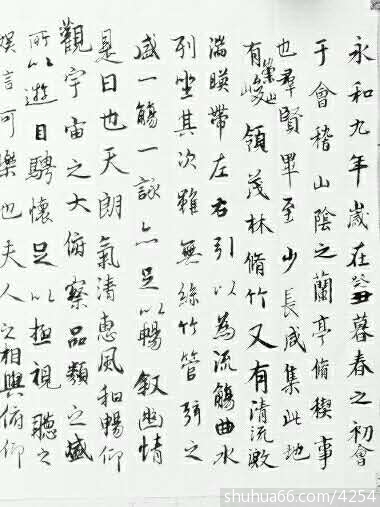 永和九年歲在癸丑暮春之初會
于會稽山陰之蘭亭脩稧事
也羣賢畢至少長咸集此地
有崇山峻領茂林脩竹又有清流激
湍暎帶左右引以為流觴曲水
列坐其次雖無絲竹管弦之
盛一觴一詠亦足以暢敘幽情
是日也天朗氣清惠風和暢仰
觀宇宙之大俯察品類之盛
所以遊目騁懷足以極視聽之
娛信可樂也夫人之相與俯仰
shuhua66.com/4254